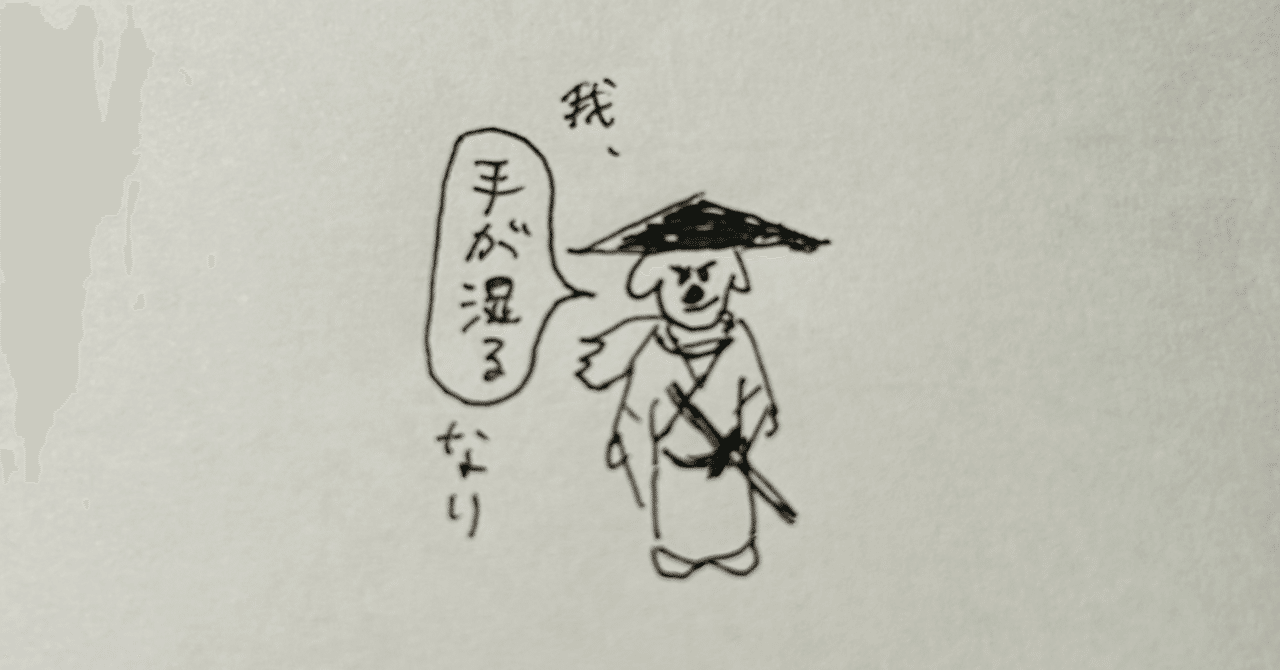 我、
手が湿る
なり